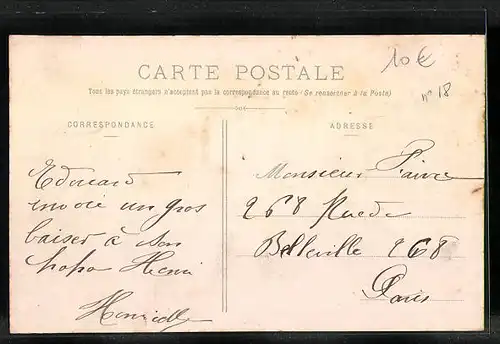 10€
CARTE POSTALE
Tous les pays étrangers n'acceptent pas la correspondance au recto (Se renseigner à la Poste)
n° 18
CORRESPONDANCE
Edouard
envoie un gros
baiser à son
papa Henri
Henriette
ADRESSE
Monsieur Faivre
268 Rue de
Belleville 268
Paris